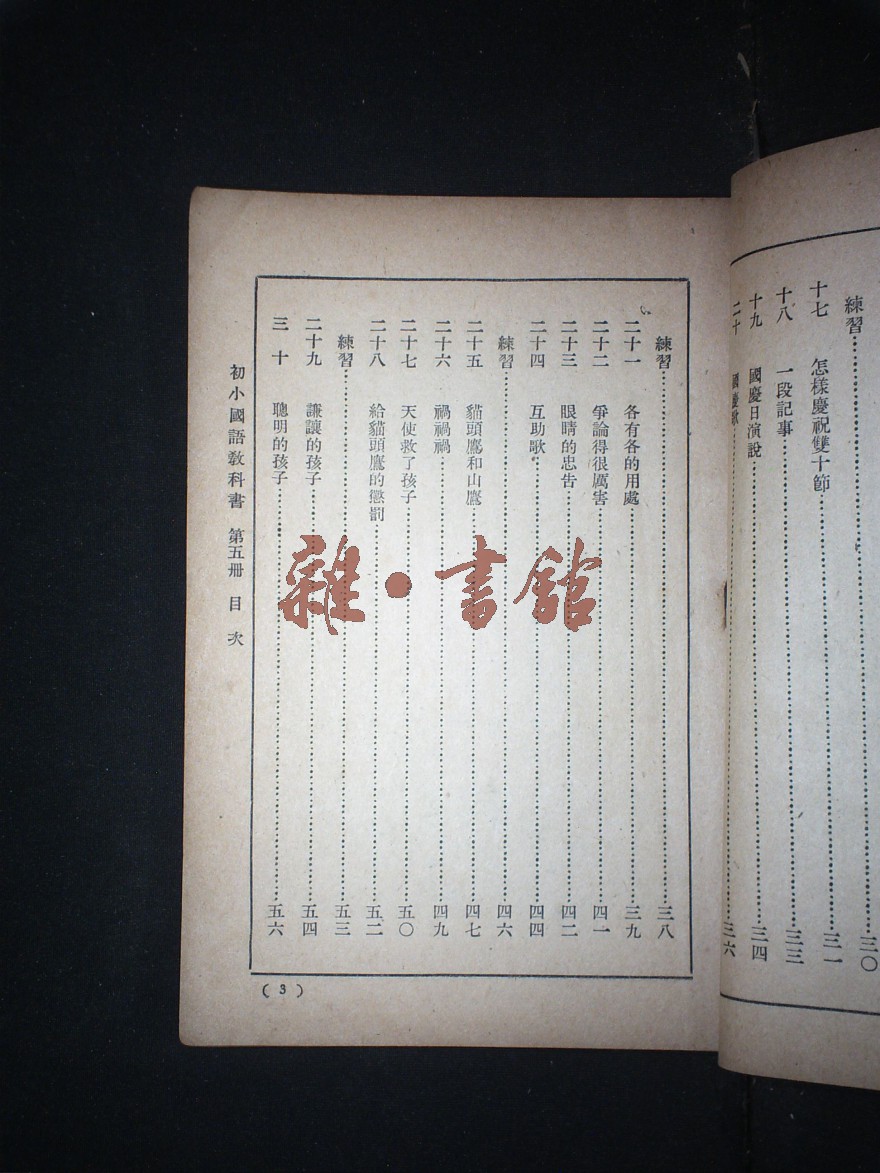 練習……三〇
十七 怎樣慶祝雙十節……三一
十八 一段記事……三三
十九 國慶日演說……三四
二十 國慶歌……三六
練習……三八
二十一 各有各的用處……三九
二十二 爭論得很厲害……四一
二十三 眼睛的忠告……四二
二十四 互助歌……四四
練習……四六
二十五 貓頭鷹和山鷹……四七
二十六 禍禍禍……四九
二十七 天使救了孩子……五〇
二十八 給貓頭鷹的懲罰……五二
練習……五三
二十九 謙讓的孩子……五四
三十 聰明的孩子……五六
初小國語教科書 第五冊 目次
(3)
雜·書館